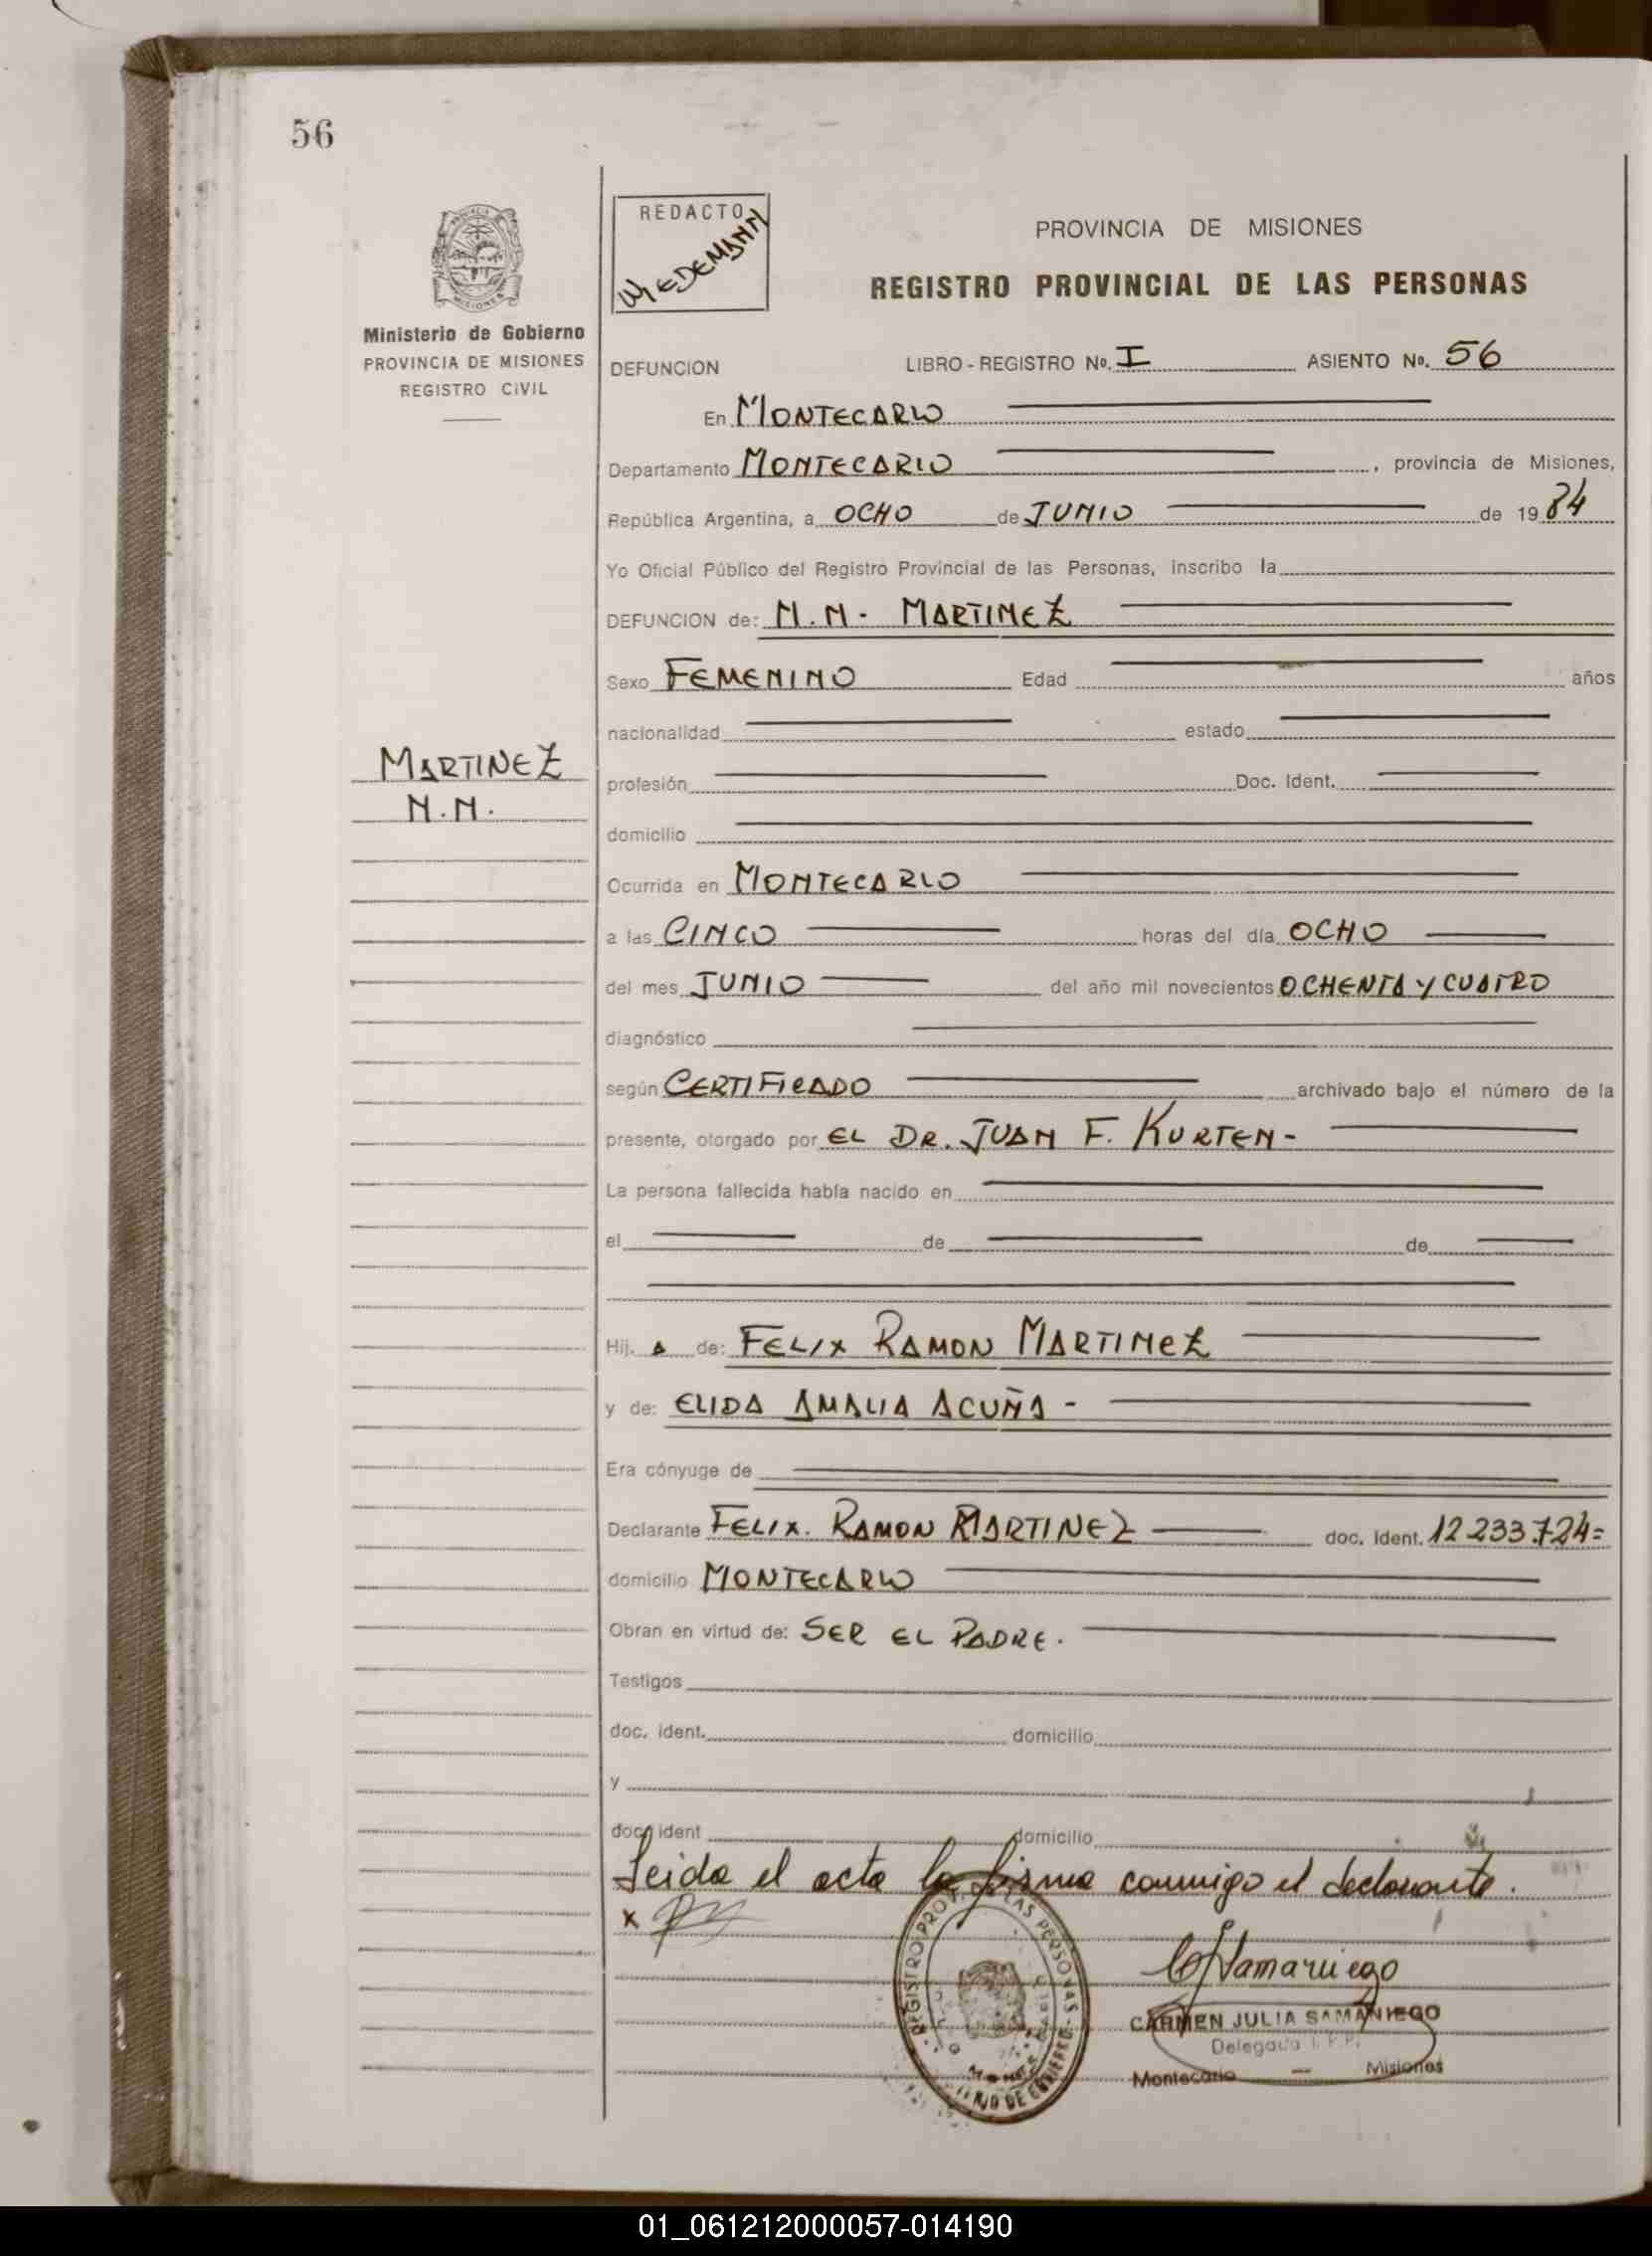 56
Ministerio de Gobierno
PROVINCIA DE MISIONES
REGISTRO CIVIL
MARTINEZ
N.N.
REDACTO
WIEDEMANN
PROVINCIA DE MISIONES
REGISTRO PROVINCIAL DE LAS PERSONAS
DEFUNCION LIBRO - REGISTRO No. I ASIENTO No. 56
En MONTECARLO
Departamento MONTECARLO, provincia de Misiones,
República Argentina, a OCHO de JUNIO de 1984
Yo Oficial Público del Registro Provincial de las Personas, inscribo la
DEFUNCION de: N.N. - MARTINEZ
Sexo FEMENINO Edad años
nacionalidad estado
profesión Doc. Ident.
domicilio
Ocurrida en MONTECARLO
a las CINCO horas del día OCHO
del mes JUNIO del año mil novecientos OCHENTA Y CUATRO
diagnóstico
según CERTIFICADO archivado bajo el número de la
presente, otorgado por EL DR. JUAN F. KURTEN -
La persona fallecida había nacido en
el de de
Hij. A de: FELIX RAMON MARTINEZ
y de: ELIDA AMALIA ACUÑA -
Era cónyuge de
Declarante FELIX. RAMON MARTINEZ doc. Ident. 12.233.724=
domicilio MONTECARLO
Obran en virtud de: SER EL PADRE.
Testigos
doc. ident. domicilio
y
doc. ident domicilio
Leida el acta la firma conmigo el declarante.
x
REGISTRO PROV. LAS PERSONAS
CSamaniego
CARMEN JULIA SAMANIEGO
Delegada
Montecarlo — Misiones
01_061212000057-014190